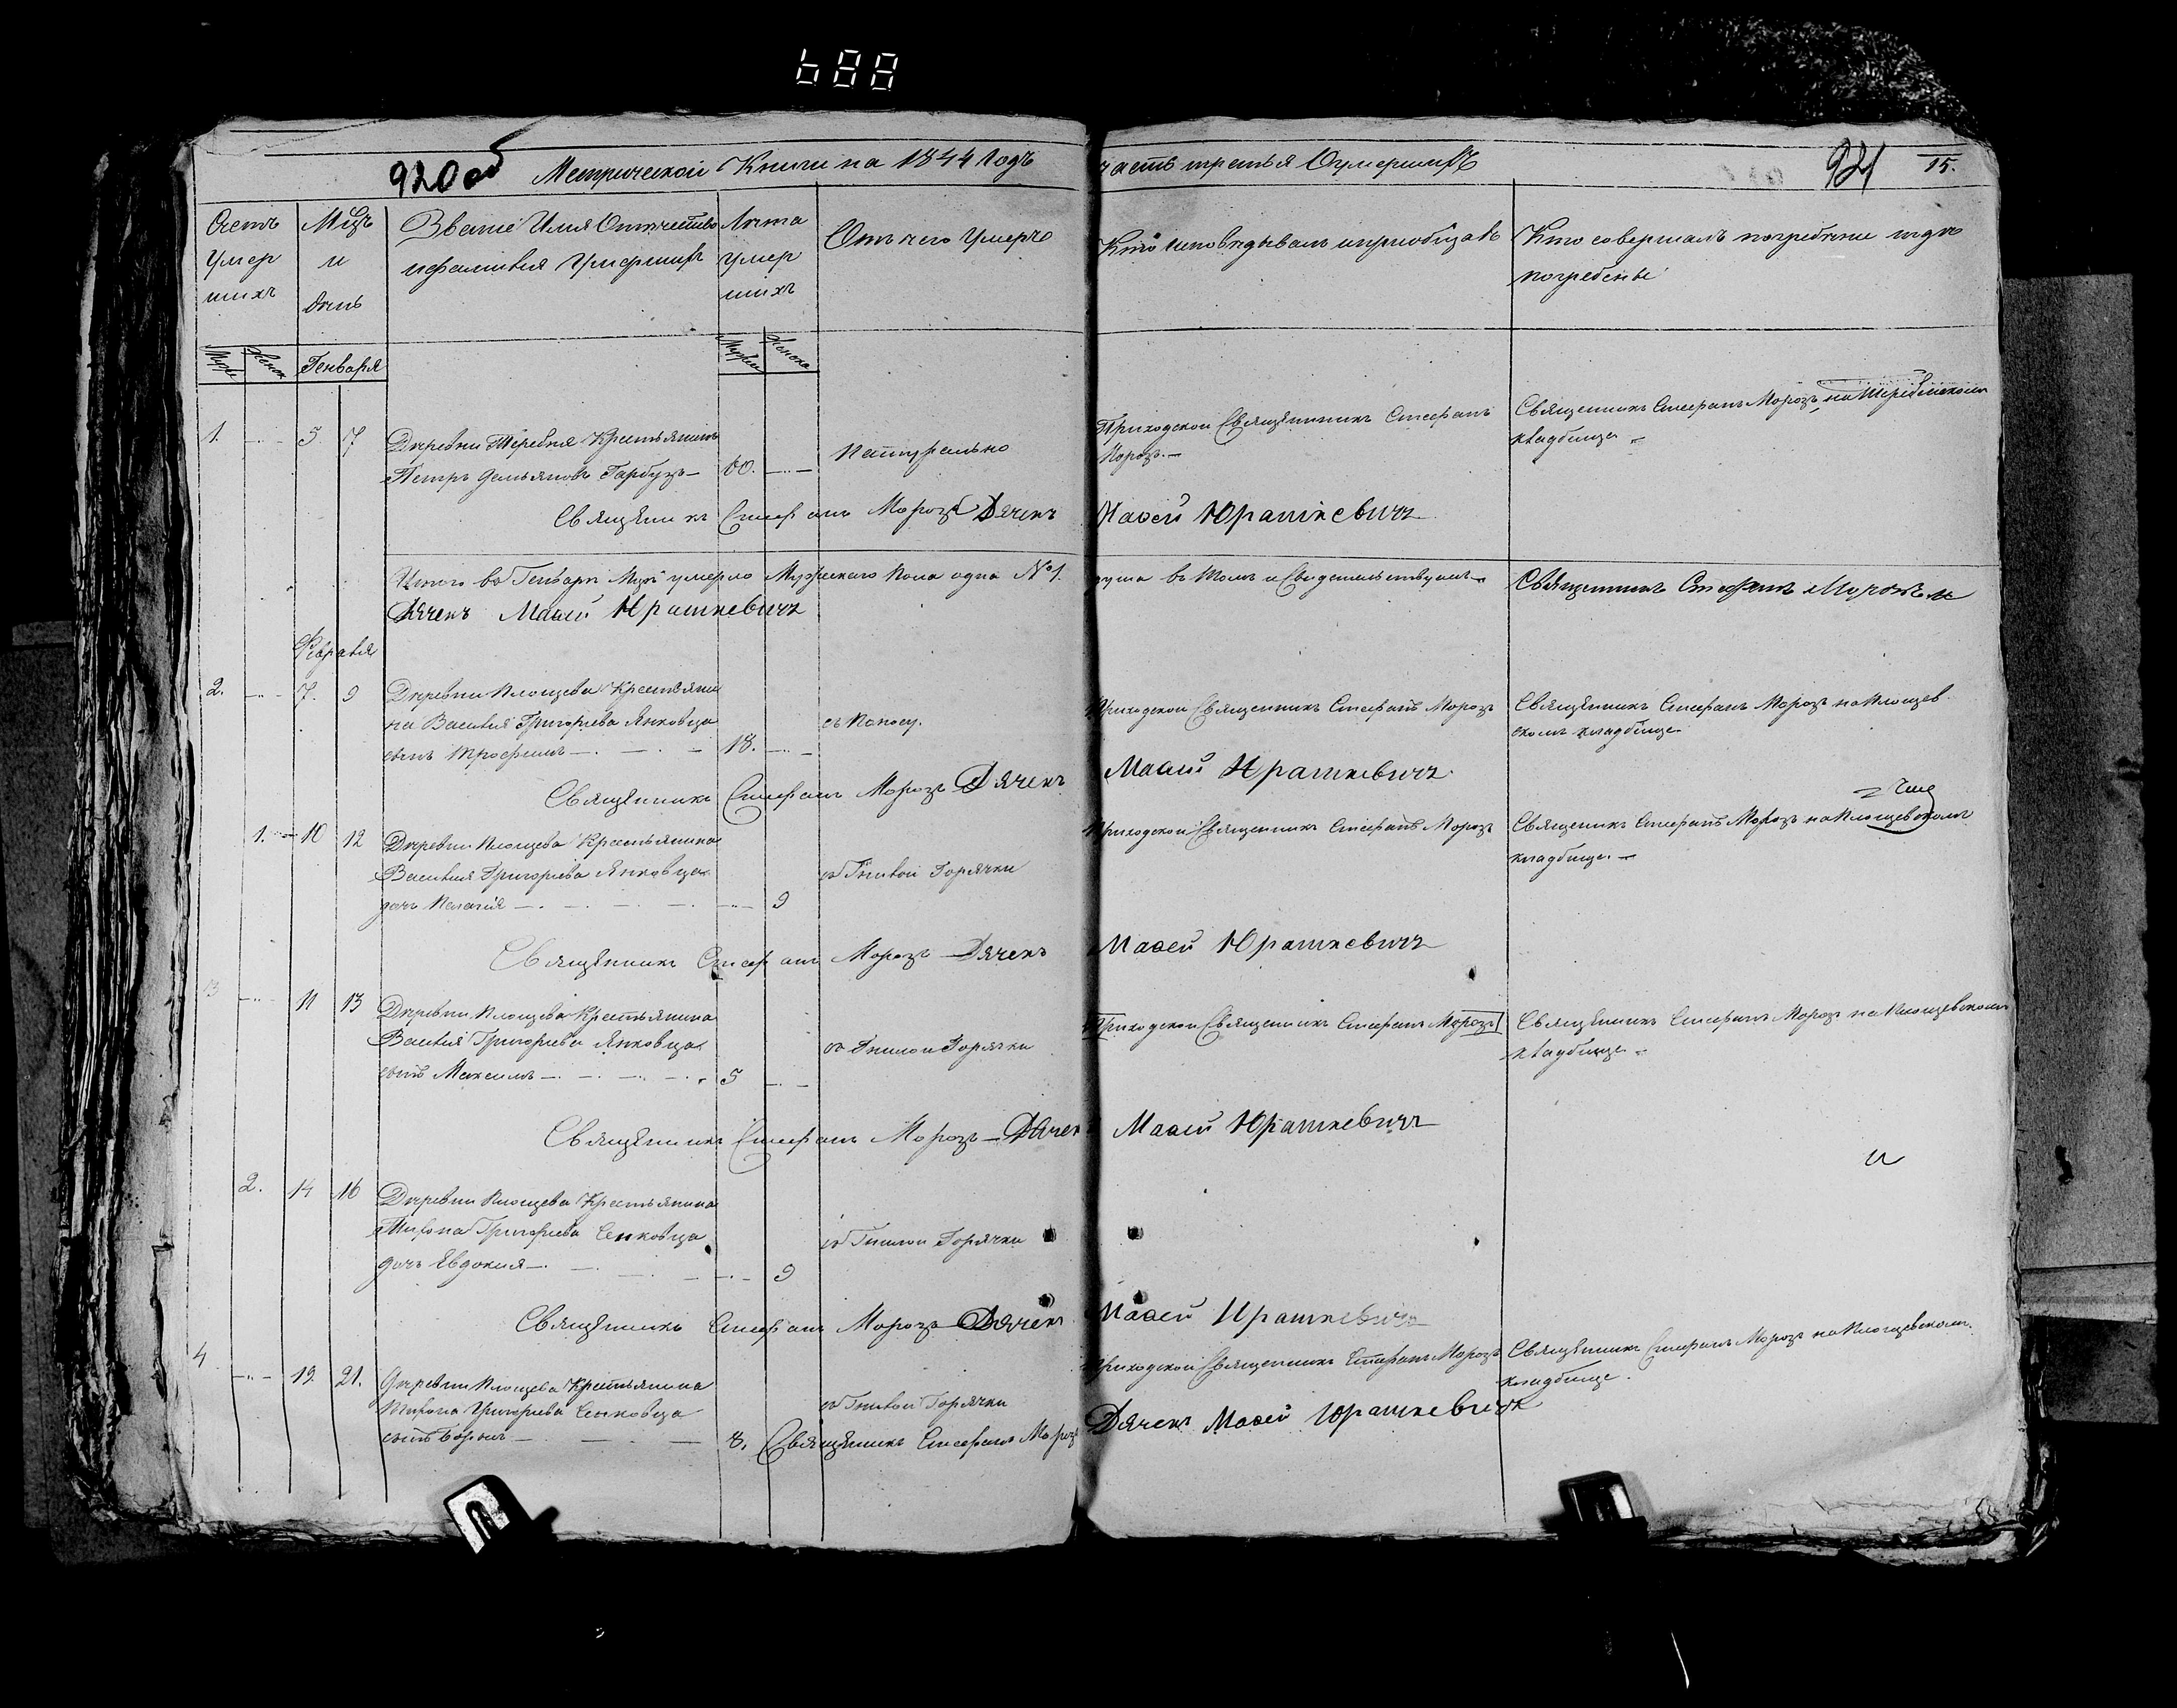 688
920 об
Метрической Книги на 1844 Годъ
часть третья Оумершихъ
921
15.
Счетъ
Умер
шихъ
Мцъ
и
день
Званіе Имя Отечество
ифамилія Умершихъ
Лета
Умер
шихъ
Отъ чего Умеръ
Кто исповедывалъ иприобщалъ
Кто совершалъ погребеніе игде
погребены
Генваря
1. 5 7 Деревни Теребня Крестьянинъ
Петръ Демьяновъ Гарбузъ 60.
Натурально
Приходской Священникъ Стефанъ
Морозъ
Священникъ Стефанъ Морозъ на
кладбище
Священникъ Стефанъ Морозъ Дячекъ Моѳей Юрашкевичъ
Итого въ Генваре Мце умерло Мужеского Пола одна №1.
душа въ томъ и Свидетельствуемъ
Священникъ Стефанъ Морозъ и
Дячекъ Моѳей Юрашкевичъ
Февраля
2. 7. 9 Деревни Плющева Крестьяни
на Василія Григорьева Янковца
сынъ Трофимъ 18.
съ Поносу.
Приходской Священникъ Стефанъ Морозъ
Священникъ Стефанъ Морозъ на Плющев
скомъ кладбище
Священникъ Стефанъ Морозъ Дячекъ Моѳей Юрашкевичъ
1. 10 12 Деревни Плющева Крестьянина
Василія Григорьева Янковца
дочь Пелагія 9
Гнилой Горячки
Приходской Священникъ Стефанъ Морозъ
Священникъ Стефанъ Морозъ на Плющевскомъ
кладбище.
Священникъ Стефанъ Морозъ Дячекъ Моѳей Юрашкевичъ
3 11 13 Деревни Плющева Крестьянина
Василія Григорьева Янковца
сынъ Максимъ 5
Гнилой Горячки
Приходской Священникъ Стефанъ Морозъ
Священникъ Стефанъ Морозъ на Плющевскомъ
кладбище
Священникъ Стефанъ Морозъ Дячекъ Моѳей Юрашкевичъ
и
2. 14 16 Деревни Плющева Крестьянина
Григорьева Сенковца
дочь Евдокия 9
Гнилой Горячки
Священникъ Стефанъ Морозъ Дячекъ Моѳей Юрашкевичъ
4 19. 21. Деревни Плющева Крестьянина
Григорьева Сенковца
сынъ 8.
Гнилой Горячки
Приходской Священникъ Стефанъ Морозъ
Священникъ Стефанъ Морозъ на Плющевскомъ
кладбище.
Священникъ Стефанъ Морозъ Дячекъ Моѳей Юрашкевичъ